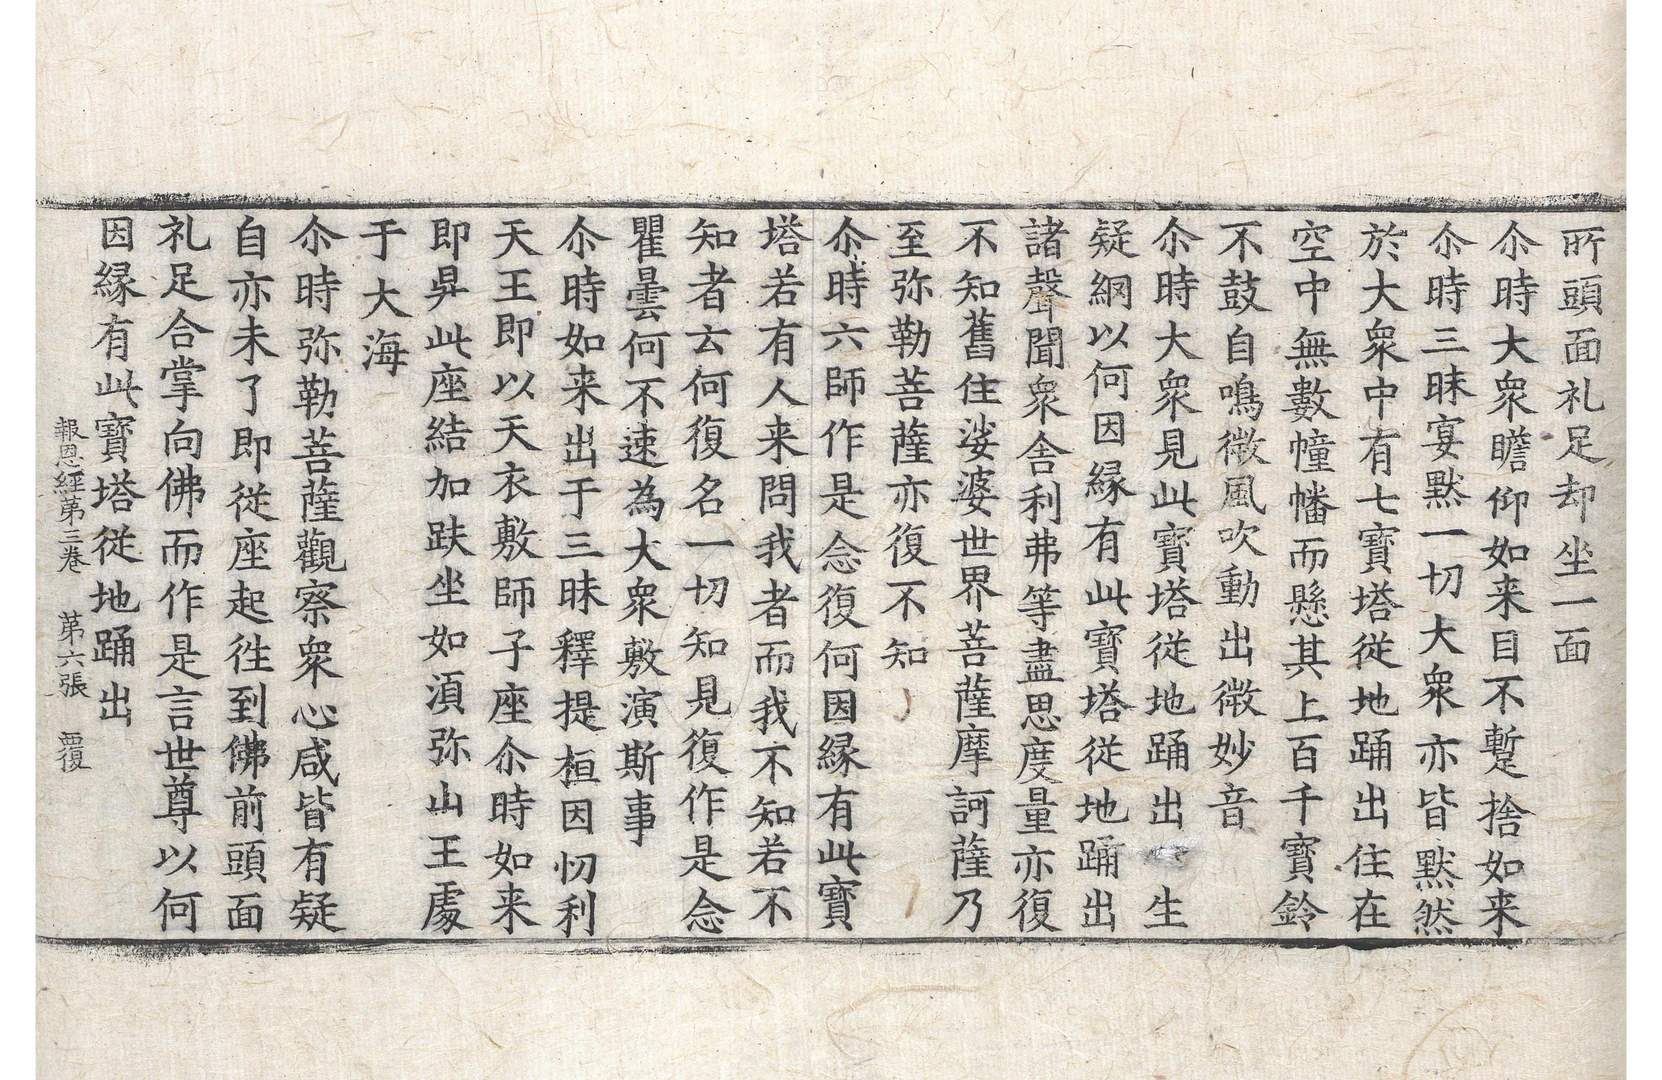 所頭面礼足却坐一面
尒時大衆瞻仰如来目不蹔捨如来
尒時三昧宴黙一切大衆亦皆黙然
於大衆中有七寶塔従地踊出住在
空中無數幢幡而懸其上百千寶鈴
不鼓自鳴微風吹動出微妙音
尒時大衆見此寶塔従地踊出生
疑網以何因縁有此寶塔従地踊出
諸聲聞衆舎利弗等盡思度量亦復
不知舊住娑婆世界菩薩摩訶薩乃
至弥勒菩薩亦復不知
尒時六師作是念復何因縁有此寶
塔若有人来問我者而我不知若不
知者云何復名一切知見復作是念
瞿曇何不速為大衆敷演斯事
尒時如来出于三昧釋提桓因忉利
天王即以天衣敷師子座尒時如来
即昇此座結加趺坐如湏弥山王處
于大海
尒時弥勒菩薩觀察衆心咸皆有疑
自亦未了即従座起徃到佛前頭面
礼足合掌向佛而作是言世尊以何
因縁有此寶塔従地踊出
報恩經第三卷 第六張 覆